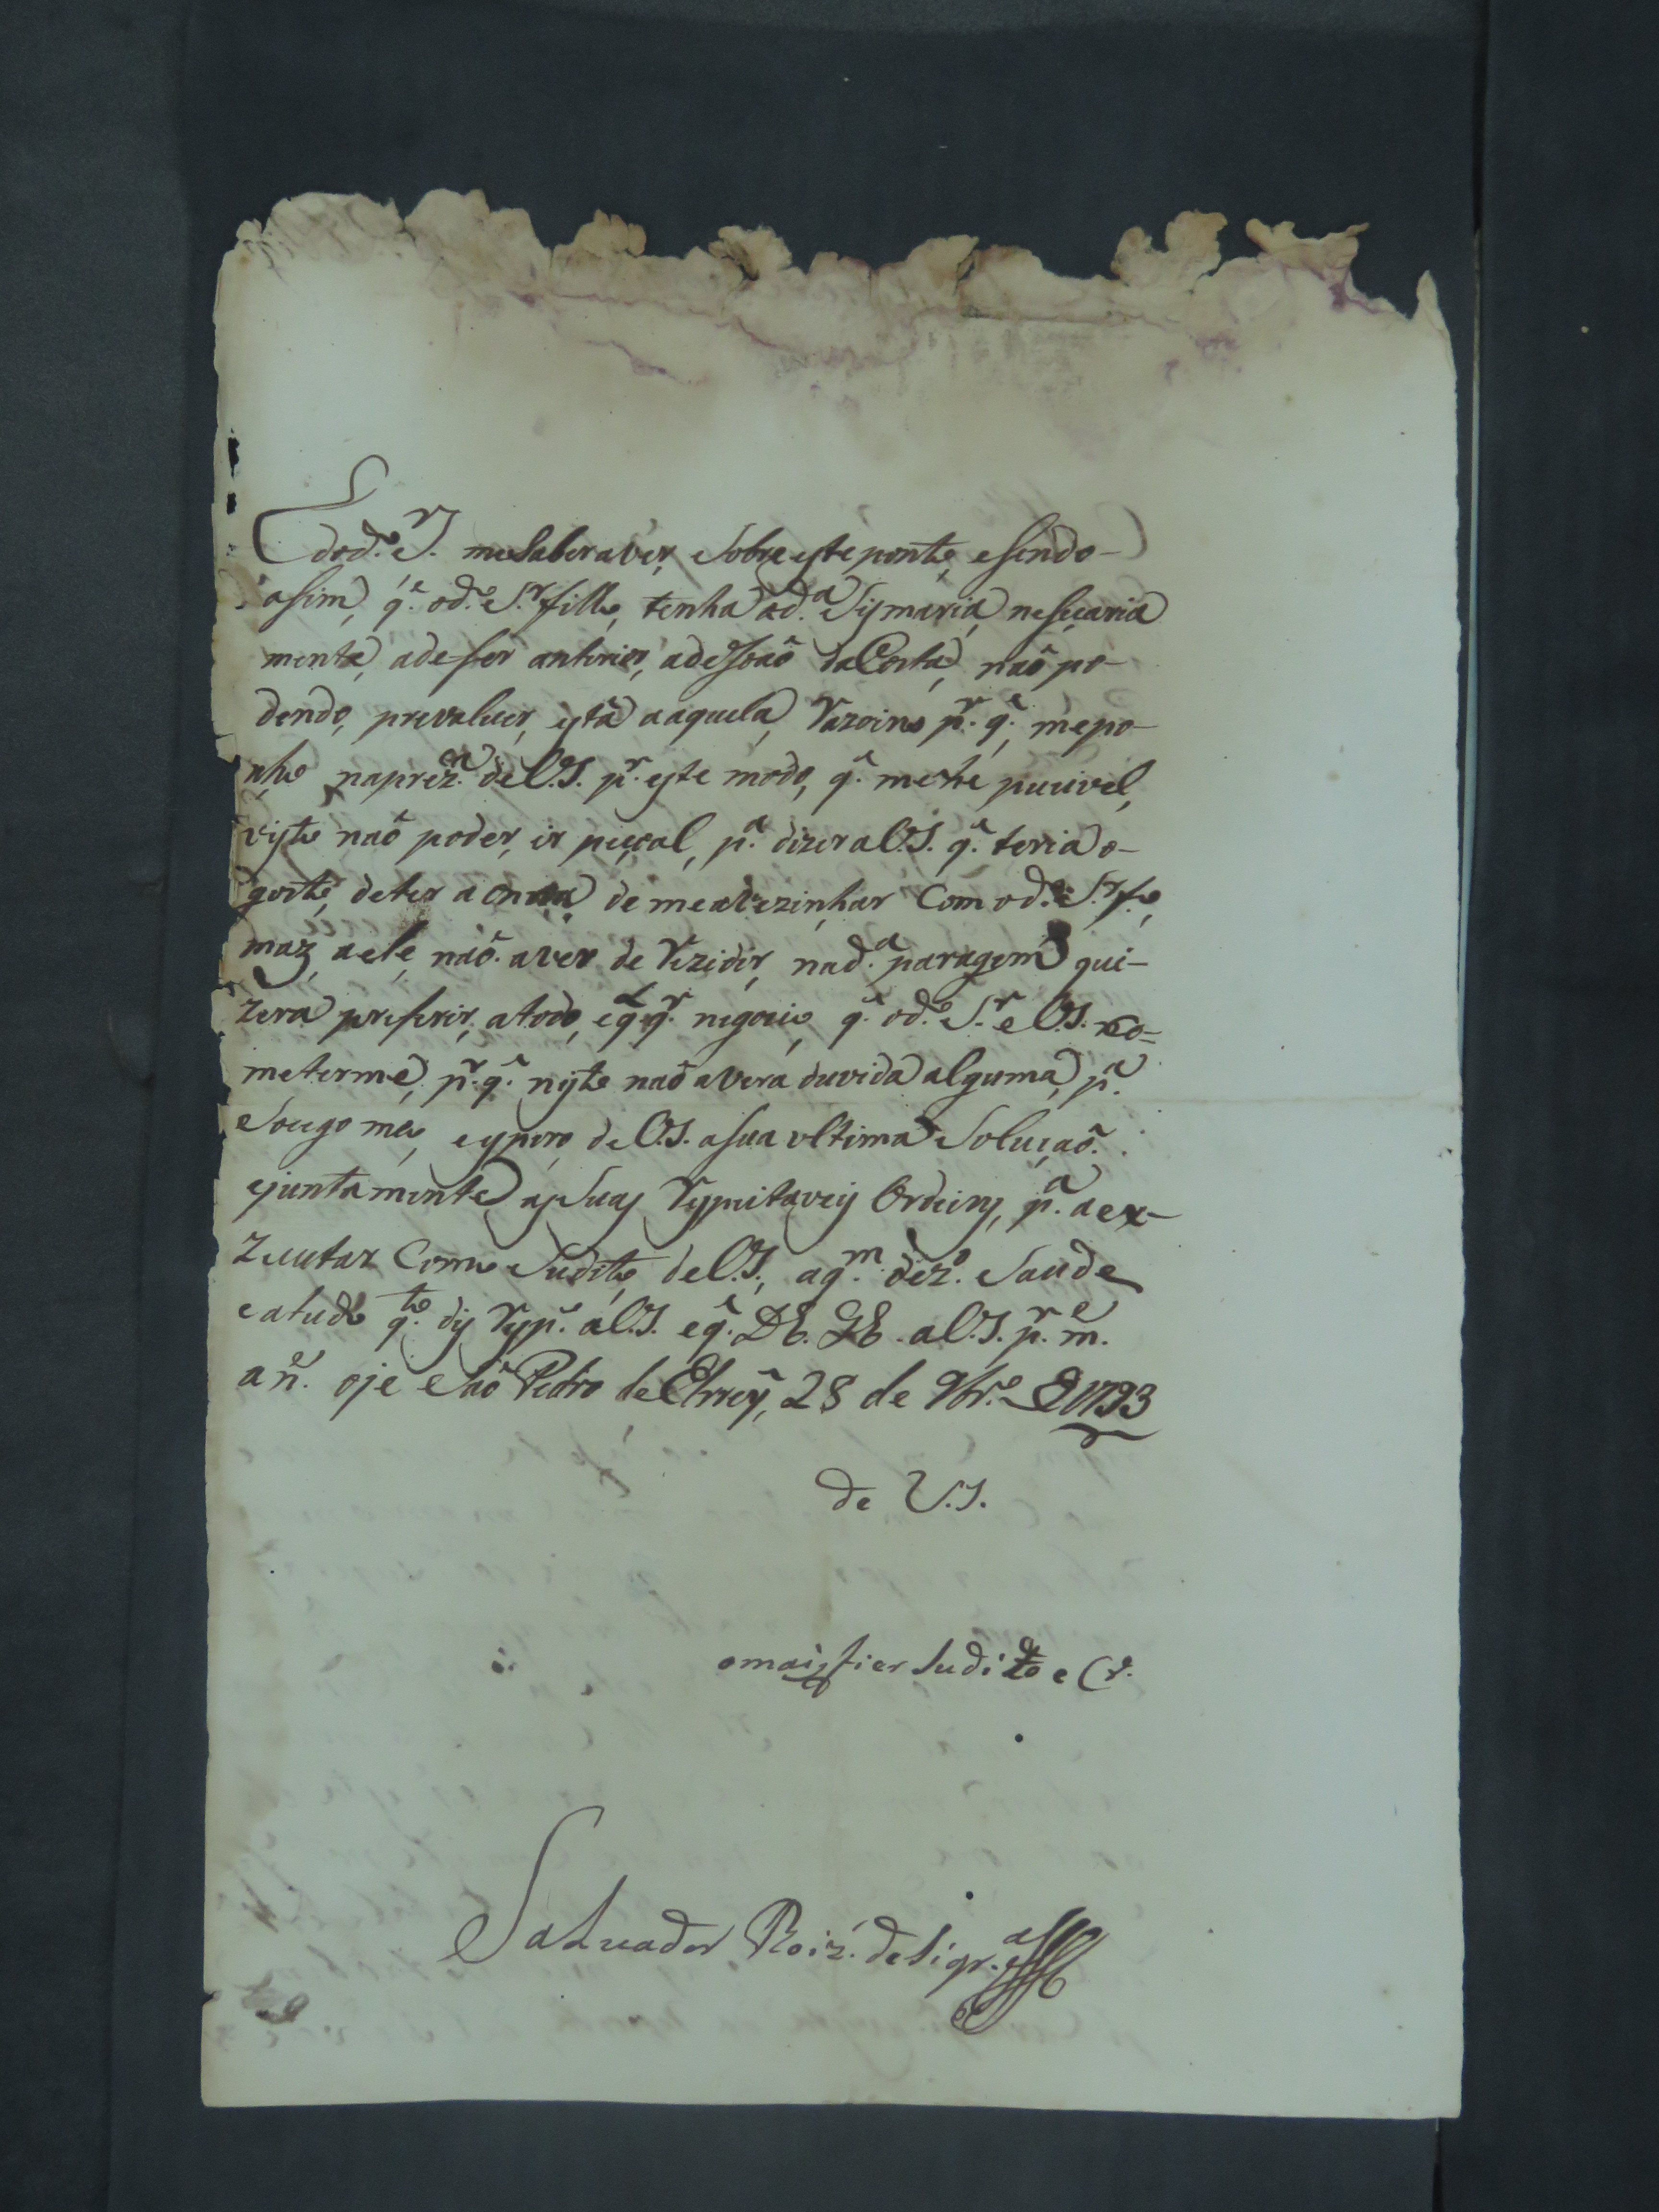 dod.º S.r me saber aver, sobre este ponto, e sendo-
asim, q.e o d.º S.r filho, tenha a d.a Sismaria, nesesaria
mente, ade ser anterior, a de João da Costa, não po-
dendo, prevalecer, esta a aquela, Razoins p.r q.e, me po-
nho na prez.a de V.S. p.r este modo, q.e me he pucivel,
visto não poder, ir peçoal, p.a dizer a V.S. q.e teria o-
gosto, de ter a onrra de me avezinhar Com o d.º S.r f.º,
maz, a ele, não aver de Rezidir, na d.a paragem qui-
zera preferir, a todo, e q.l q.r negocio, q.e o d.º S.r e V.S.
meterme, p.r q.e nisto não avera duvida alguma, p.a
socego meo, espero, de V.S. a sua ultima Solução.
ejuntamente as Suas Respeitaveis Ordeins, p.a a ex-
zecutar Como Sudito de V.S., a q.m dez.º Saude
e a tudo q.to dis Resp.º a V.S. e q.e D.E. G.E. a V.S. p.r m.
an. oje São Pedro 28 de 9br.º D 1793
de V.S.
o mais fier sudito e Cr.
Salvador Roiz. de Siqr.a